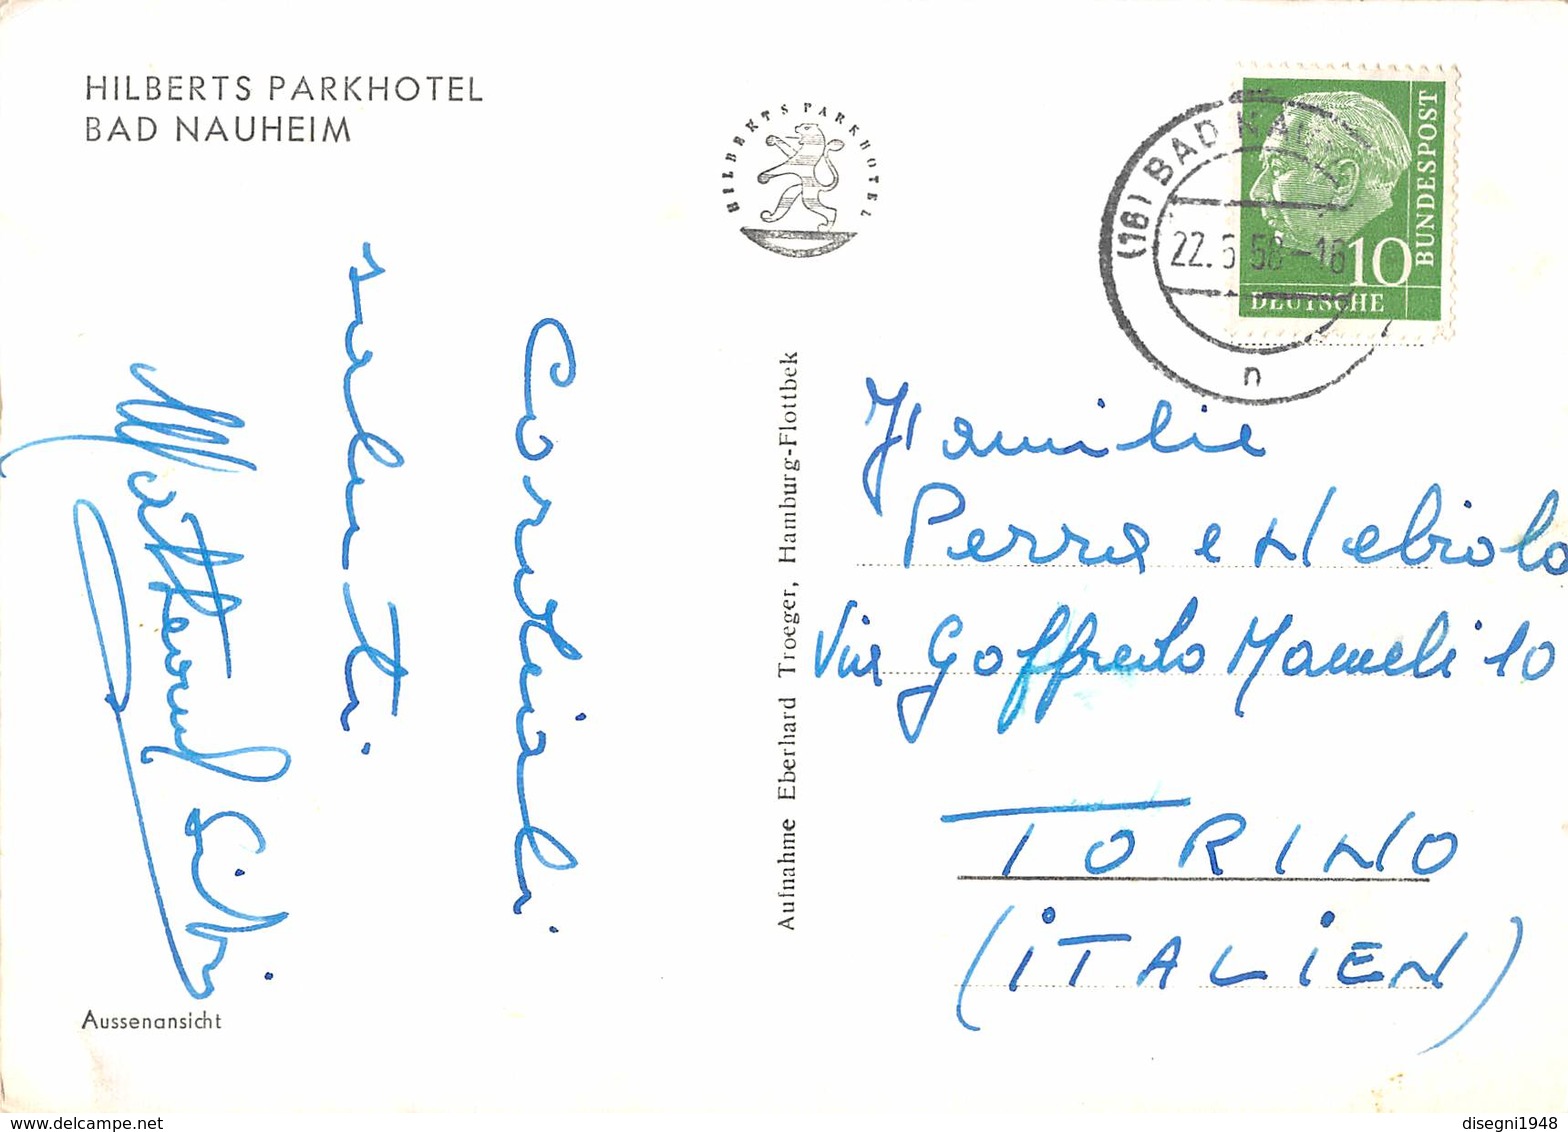 HILBERTS PARKHOTEL
BAD NAUHEIM
HILBERTS PARKHOTEL
(16) BAD NAU
22.5 58-18
n
10
BUNDESPOST
DEUTSCHE
Cordiali
saluti
Aufnahme Eberhard Troeger, Hamburg-Flottbek
Familie
Perra e Nebiolo
Via Goffredo Mameli 10
TORINO
(ITALIEN)
Aussenansicht
delcampe.net
disegni1948